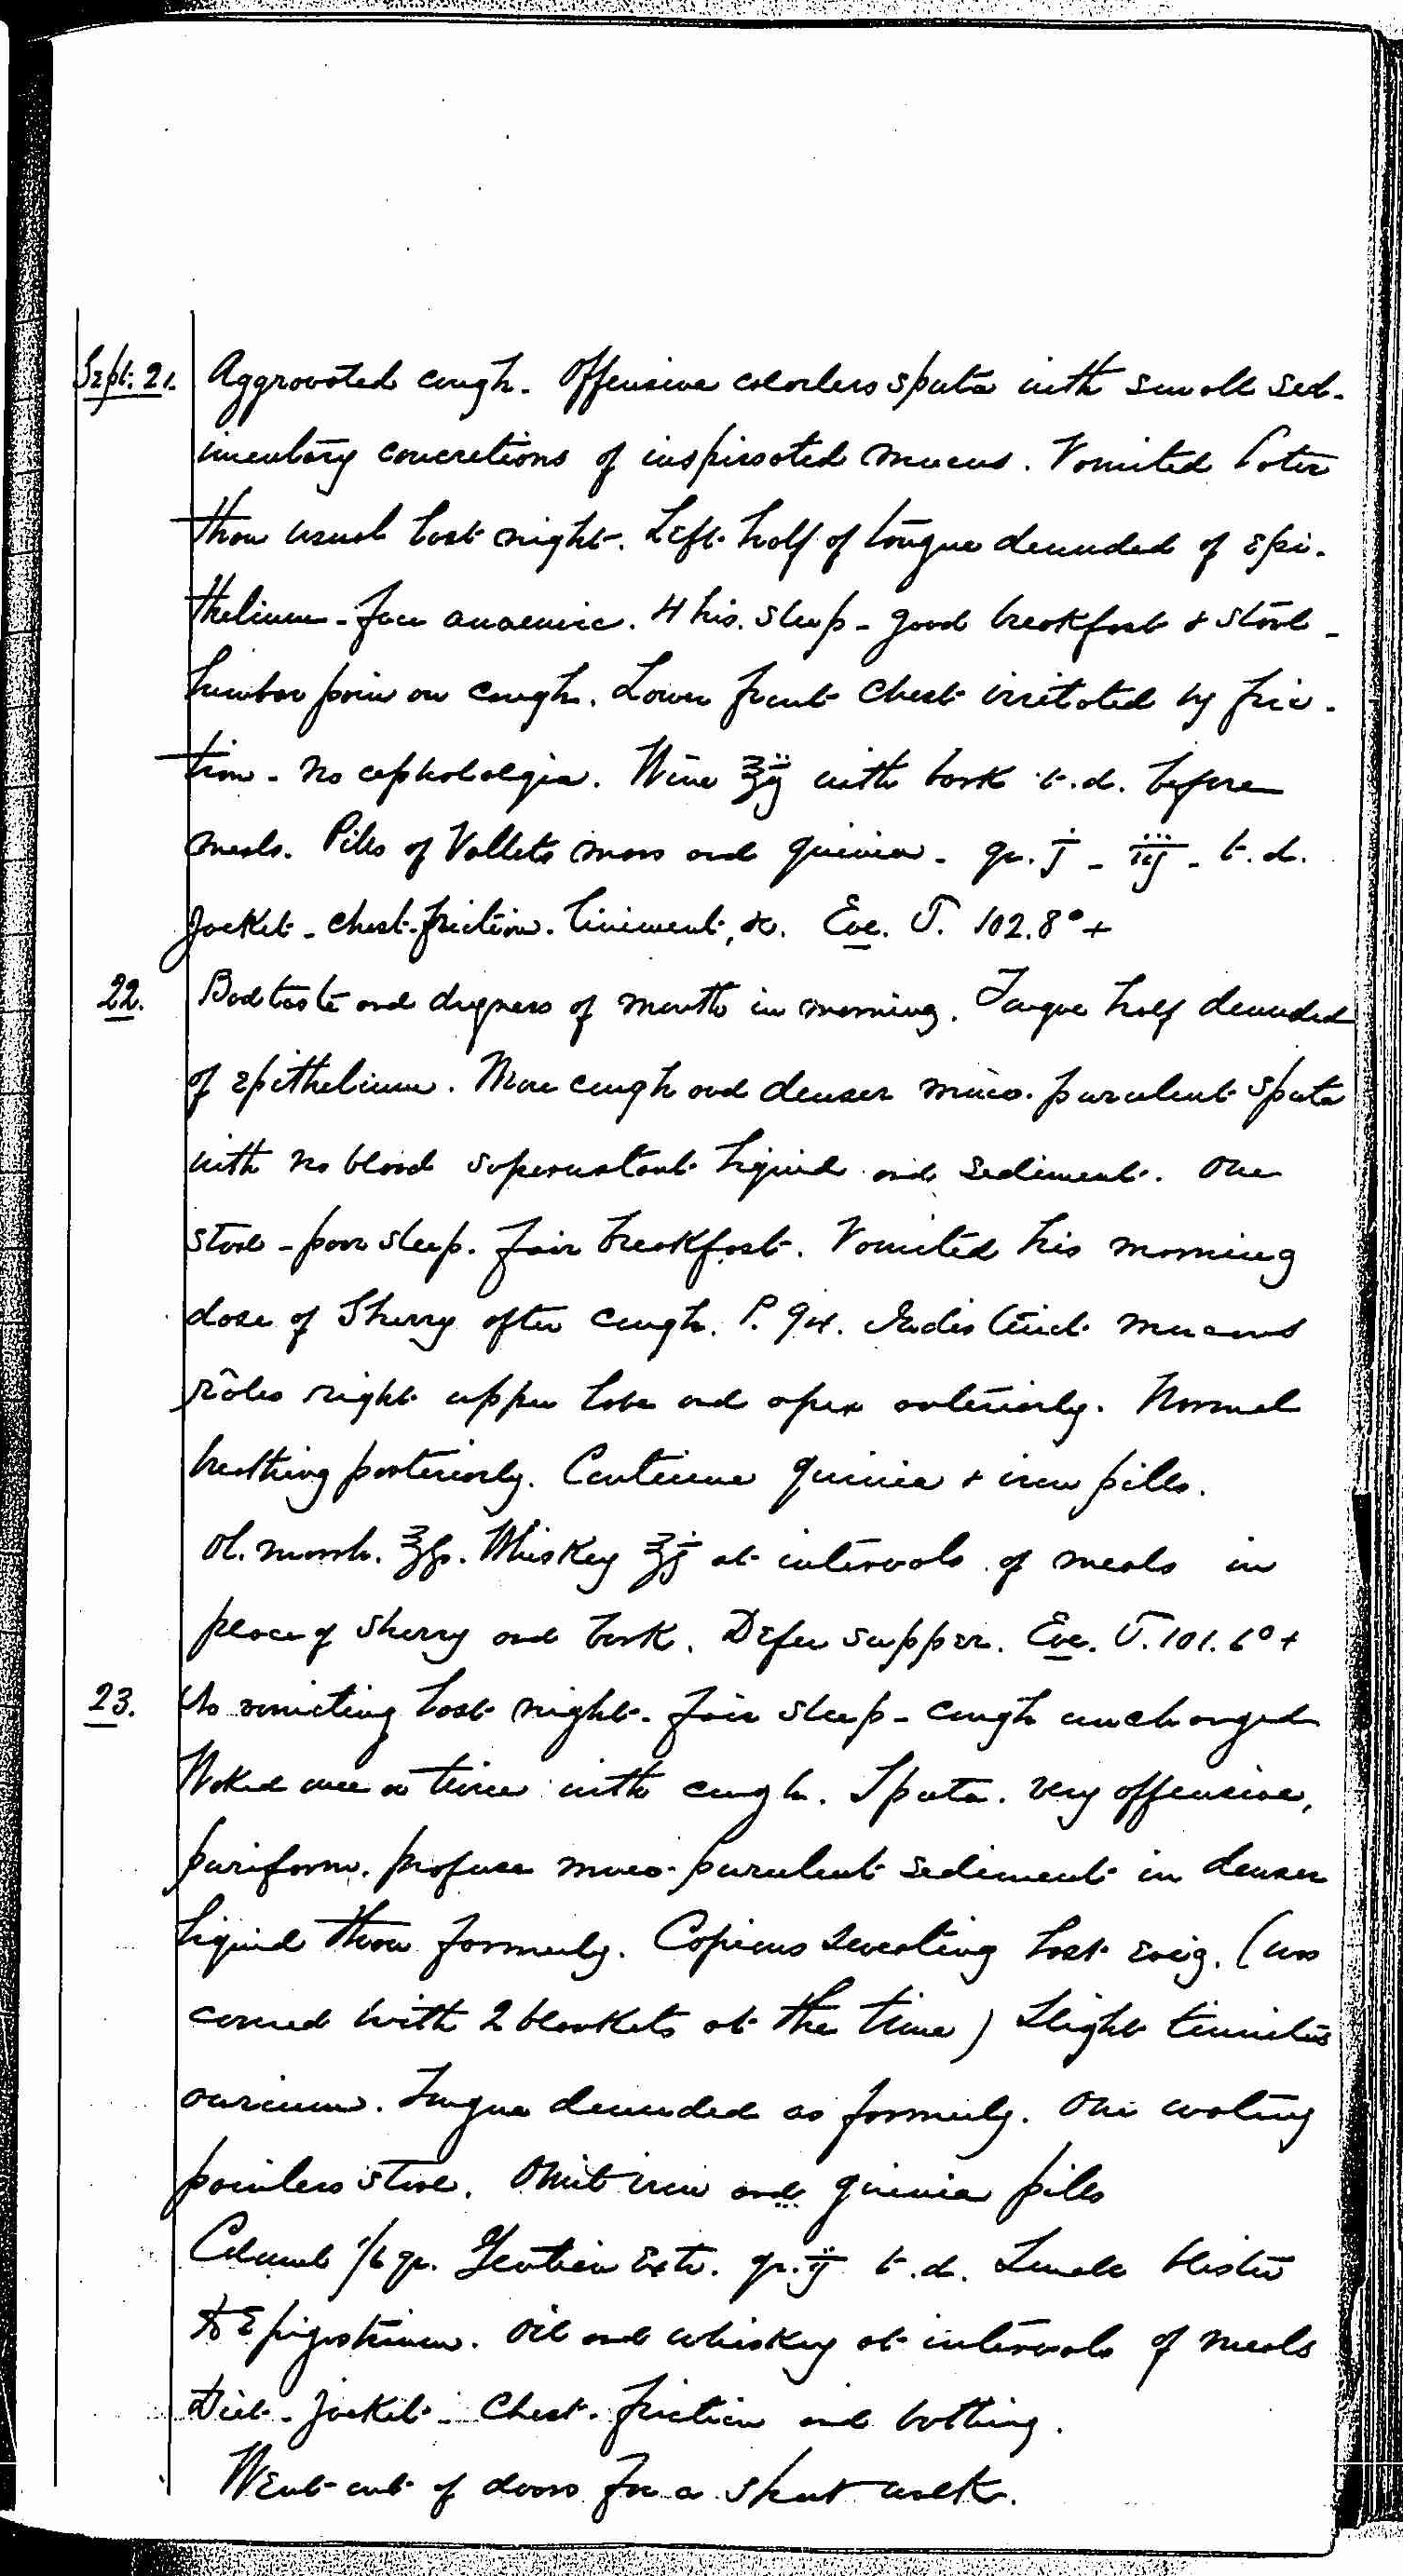 Sept. 21. Aggravated cough. Offensive colorless sputa with small sed-
imentary concretions of inspissated mucus. Vomited later
than usual last night. Left half of tongue denuded of epi-
thelium - face anaemic. 4 hrs. sleep - good breakfast & stool -
lumbar pain on cough. Lower front chest irritated by fric-
tion - no cephalalgia. Wine ℥ij with bark t.d. before
meals. Pills of Vallets mass and quinia - gr. j - iij - t.d.
Jacket - chest-friction. liniment, &c. Eve. T. 102.8° +
22. Bad taste and dryness of mouth in morning. Tongue half denuded
of epithelium. More cough and denser muco-purulent sputa
with no blood supernatant liquid and sediment. One
stool - poor sleep. fair breakfast. Vomited his morning
dose of Sherry after cough. P. 94. Indistinct mucous
râles right upper lobe and apex anteriorly. Normal
breathing posteriorly. Continue quinia & iron pills.
Ol. morrh. ℥ss. Whiskey ℥j at intervals of meals in
place of sherry and bark. Defer supper. Eve. T. 101.6° +
23. No vomiting last night - fair sleep - cough unchanged
Waked once or twice with cough. Sputa. very offensive,
puriform. profuse muco-purulent sediment in denser
liquid than formerly. Copious sweating last evig. (was
covered with 2 blankets at the time) Slight tinnitus
aurium. Tongue denuded as formerly. One
painless stool. Omit iron and quinia pills
Columb 1/6 gr. Gentian Ext. gr. ij t.d. Small blister
to Epigastrium. Oil and whiskey at intervals of meals
Diet - Jacket - Chest-friction and bathing.
Went out of doors for a short walk.